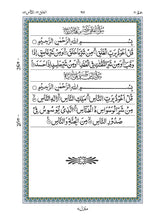 بِسْمِ اللهِ الرَّحْمٰنِ الرَّحِيْمِ
قُلْ اَعُوْذُ بِرَبِّ الْفَلَقِ مِنْ شَرِّ مَا خَلَقَ وَمِنْ شَرِّ غَاسِقٍ اِذَا
وَقَبَ وَمِنْ شَرِّ النَّفّٰثٰتِ فِى الْعُقَدِ وَمِنْ شَرِّ حَاسِدٍ اِذَا حَسَدَ
بِسْمِ اللهِ الرَّحْمٰنِ الرَّحِيْمِ
قُلْ اَعُوْذُ بِرَبِّ النَّاسِ مَلِكِ النَّاسِ اِلٰهِ النَّاسِ
مِنْ شَرِّ الْوَسْوَاسِ الْخَنَّاسِ الَّذِىْ يُوَسْوِسُ فِىْ
صُدُوْرِ النَّاسِ مِنَ الْجِنَّةِ وَالنَّاسِ